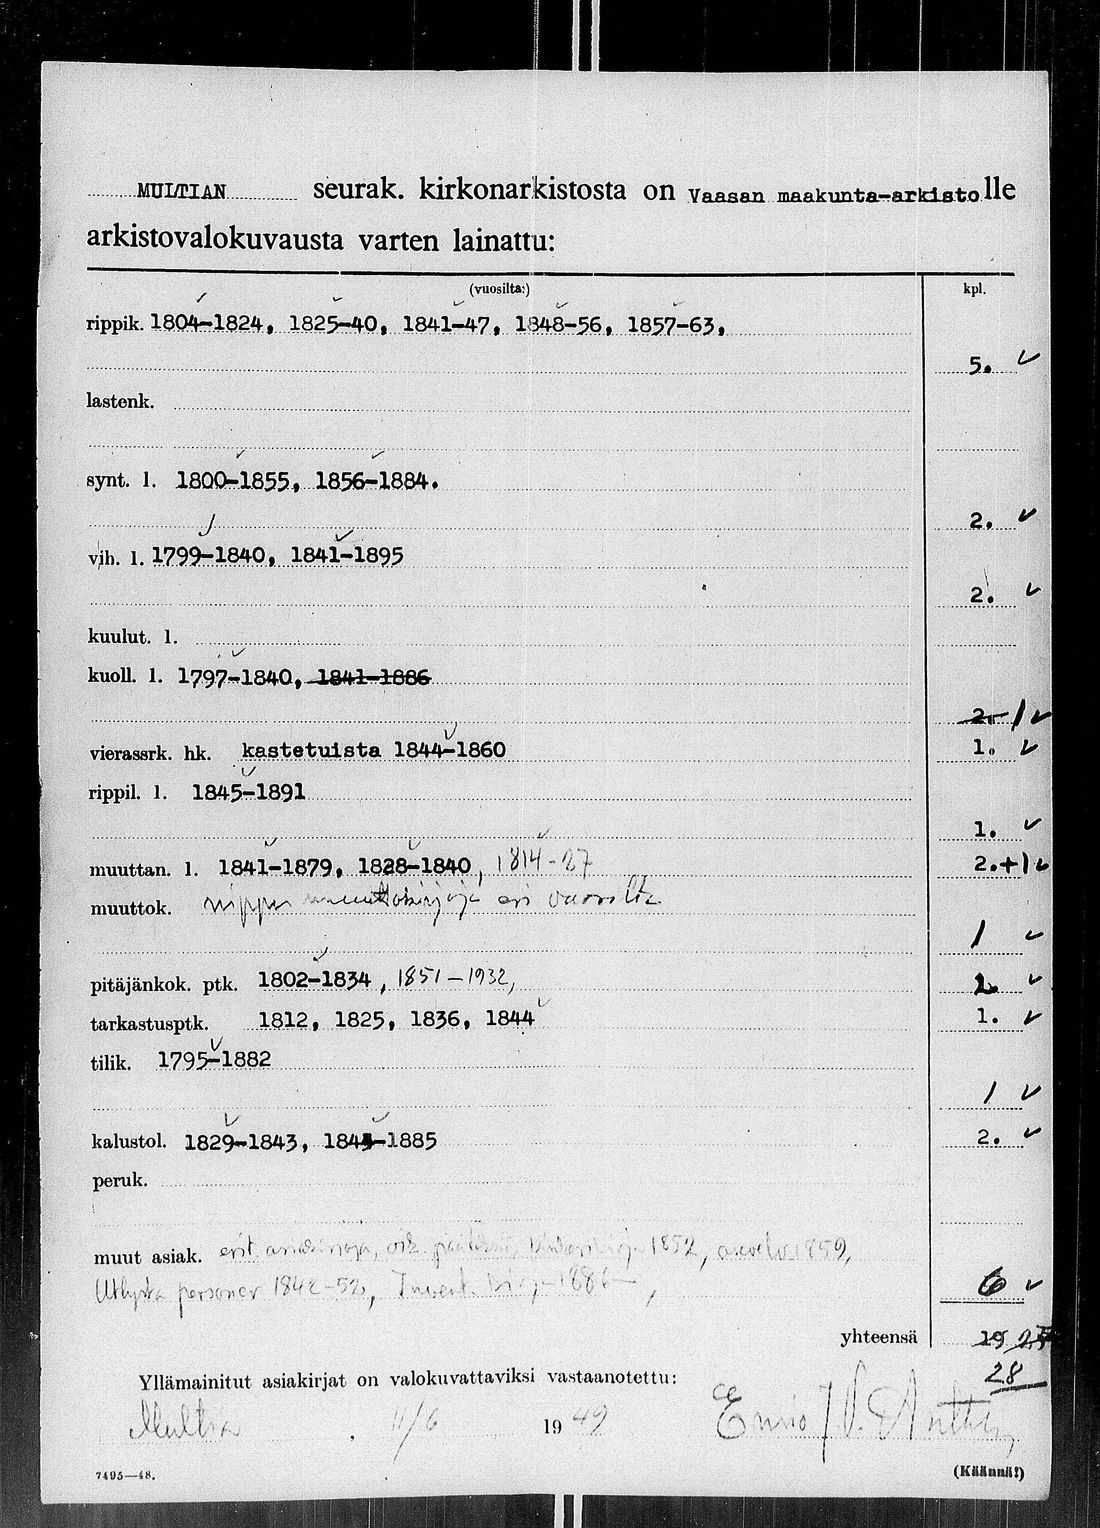 MULTIAN seurak. kirkonarkistosta on Vaasan maakunta-arkisto lle
arkistovalokuvausta varten lainattu:
(vuosilta:) kpl.
rippik. 1804-1824, 1825-40, 1841-47, 1848-56, 1857-63,
5. ✓
lastenk.
synt. l. 1800-1855, 1856-1884.
2. ✓
vih. l. 1799-1840, 1841-1895
2. ✓
kuulut. l.
kuoll. l. 1797-1840, 1841-1886
2. 1 ✓
vierassrk. hk. kastetuista 1844-1860 1. ✓
rippil. l. 1845-1891
1. ✓
muuttan. l. 1841-1879, 1828-1840, 1814-27 2.+1 ✓
muuttok. nippu muuttokirjoja eri vuosilta
1 ✓
pitäjänkok. ptk. 1802-1834, 1851-1932, ✓
tarkastusptk. 1812, 1825, 1836, 1844 1. ✓
tilik. 1795-1882
1 ✓
kalustol. 1829-1843, 1845-1885 2. ✓
peruk.
muut asiak. erit. asiakirjoja, 1852, 1859,
Utlysta personer 1842-52, Invent. kirja 1886
6 ✓
yhteensä 19 25
28
Yllämainitut asiakirjat on valokuvattaviksi vastaanotettu:
Multia, 11/6 1949
7495—48. (Käännä!)